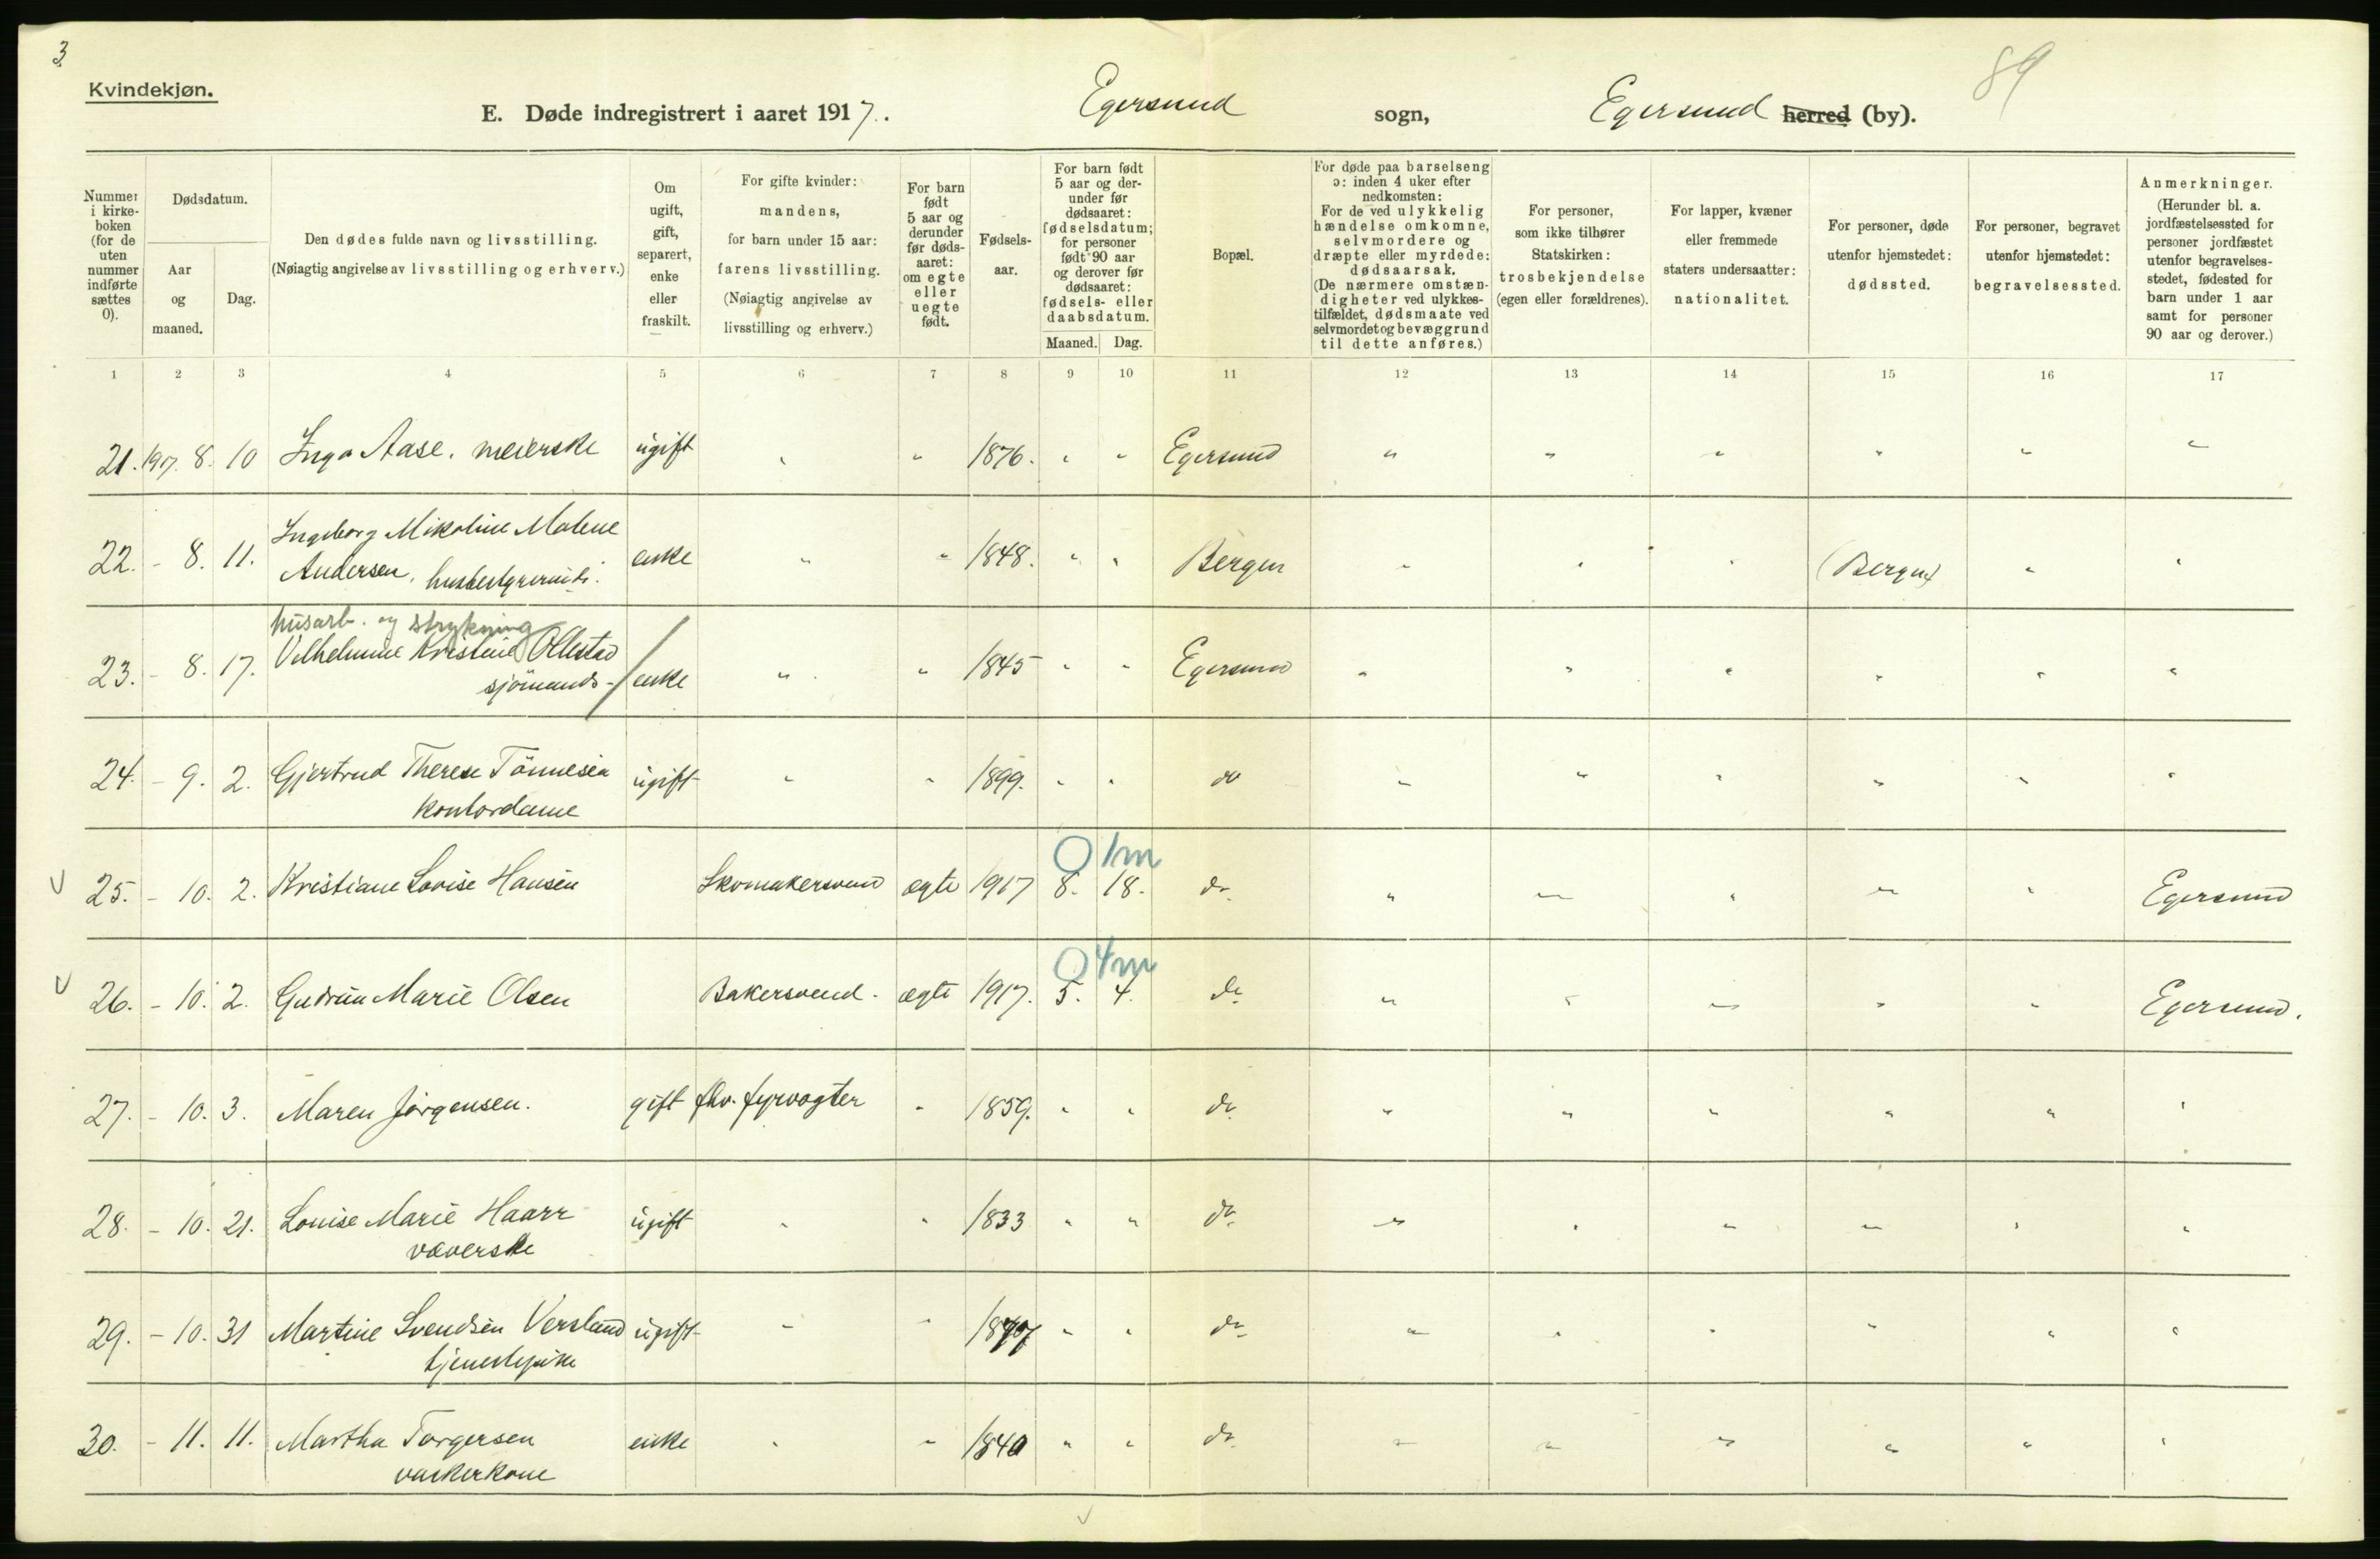 3
89
Kvindekjøn.
E. Døde indregistrert i aaret 1917. Egersund sogn, Egersund herred (by).
Nummer i kirkeboken (for de uten nummer indførte sættes 0).
Dødsdatum.
Aar og maaned.
Dag.
Den dødes fulde navn og livsstilling.
(Nøiagtig angivelse av livsstilling og erhverv.)
Om ugift, gift, separert, enke eller fraskilt.
For gifte kvinder: mandens, for barn under 15 aar: farens livsstilling. (Nøiagtig angivelse av livsstilling og erhverv.)
For barn født 5 aar og derunder før dødsaaret: om egte eller uegte født.
Fødselsaar.
For barn født 5 aar og derunder før dødsaaret: fødselsdatum; for personer født 90 aar og derover før dødsaaret: fødsels- eller daabsdatum.
Maaned. Dag.
Bopæl.
For døde paa barselseng ɔ: inden 4 uker efter nedkomsten: For de ved ulykkelig hændelse omkomne, selvmordere og dræpte eller myrdede: dødsaarsak. (De nærmere omstændigheter ved ulykkestilfældet, dødsmaate ved selvmordet og bevæggrund til dette anføres.)
For personer, som ikke tilhører Statskirken: trosbekjendelse (egen eller forældrenes).
For lapper, kvæner eller fremmede staters undersaatter: nationalitet.
For personer, døde utenfor hjemstedet: dødssted.
For personer, begravet utenfor hjemstedet: begravelsessted.
Anmerkninger. (Herunder bl. a. jordfæstelsessted for personer jordfæstet utenfor begravelsesstedet, fødested for barn under 1 aar samt for personer 90 aar og derover.)
1 2 3 4 5 6 7 8 9 10 11 12 13 14 15 16 17
21. 1917. 8. 10 Inga Aase. meierske ugift " " 1876. " " Egersund " " " " " "
Ingeborg Mikaline Malene
22. - 8. 11. Andersen, husbestyrerinde. enke " " 1848. " " Bergen " " " (Bergen) " "
husarb. og strykning
23. - 8. 17. Vilhelmine Kristine Ollestad
sjömands- / enke " " 1845 " " Egersund " " " " " "
24. - 9. 2. Gjertrud Therese Tönnesen ugift " " 1899. " " do " " " " " "
kontordame
0 1m
V 25. - 10. 2. Kristiane Lovise Hansen Skomakersvend egte 1917 8. 18. do " " " " " Egersund
0 4m
V 26. - 10. 2. Gudrun Marie Olsen Bakersvend. egte 1917. 5. 4. do " " " " " Egersund.
27. - 10. 3. Maren Jörgensen. gift fhv. fyrvogter " 1859. " " do " " " " " "
28. - 10. 21. Louise Marie Haarr ugift " " 1833 " " do " " " " " "
væverske
29. - 10. 31 Martine Svendsen Versland ugift " " " " do " " " " " "
tjenestepike
30. - 11. 11. Martha Torgersen enke " " 1840 " " do " " " " " "
vaskerkone
V